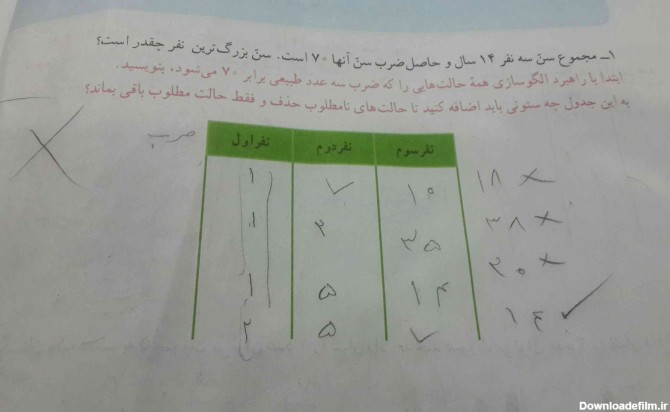 ۱ـ مجموع سنّ سه نفر ۱۴ سال و حاصل‌ضرب سنّ آنها ۷۰ است. سنّ بزرگ‌ترین نفر چقدر است؟
ابتدا با راهبرد الگوسازی همهٔ حالت‌هایی را که ضرب سه عدد طبیعی برابر ۷۰ می‌شود، بنویسید.
به این جدول چه ستونی باید اضافه کنید تا حالت‌های نامطلوب حذف و فقط حالت مطلوب باقی بماند؟
نفر اول نفر دوم نفر سوم ضرب
۱ ۷ ۱۰ ۱۸ ×
۱ ۲ ۳۵ ۳۸ ×
۱ ۵ ۱۴ ۲۰ ×
۲ ۵ ۷ ۱۴ ✓
Downloadefilm.ir